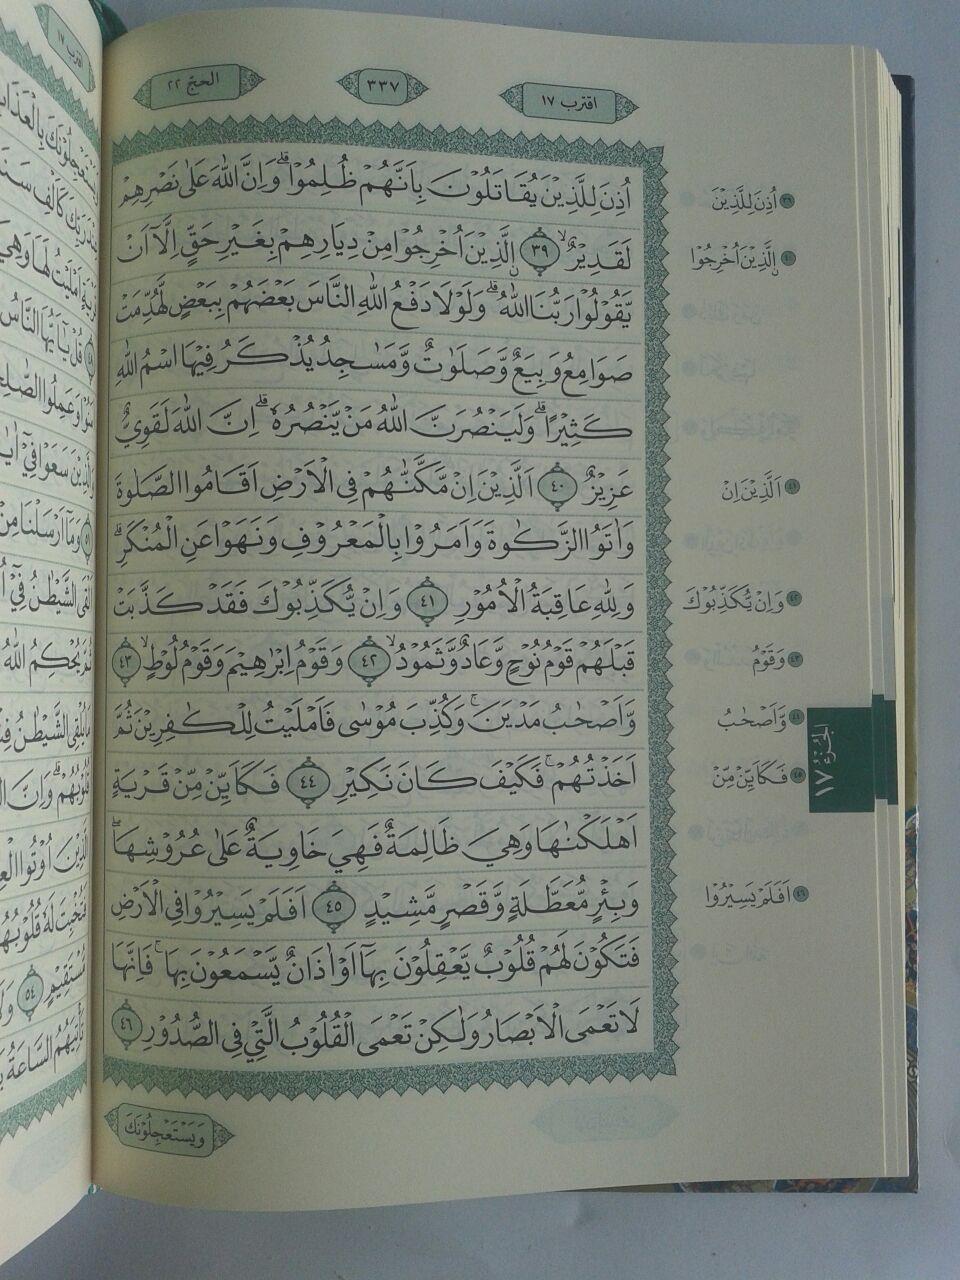 اقترب ١٧
٣٣٧
الحجّ ٢٢
اُذِنَ لِلَّذِيْنَ يُقَاتَلُوْنَ بِاَنَّهُمْ ظُلِمُوْاۗ وَاِنَّ اللّٰهَ عَلٰى نَصْرِهِمْ
لَقَدِيْرٌۙ ٣٩ ࣙالَّذِيْنَ اُخْرِجُوْا مِنْ دِيَارِهِمْ بِغَيْرِ حَقٍّ اِلَّآ اَنْ
يَّقُوْلُوْا رَبُّنَا اللّٰهُۗ وَلَوْلَا دَفْعُ اللّٰهِ النَّاسَ بَعْضَهُمْ بِبَعْضٍ لَّهُدِّمَتْ
صَوَامِعُ وَبِيَعٌ وَّصَلَوٰتٌ وَّمَسٰجِدُ يُذْكَرُ فِيْهَا اسْمُ اللّٰهِ
كَثِيْرًاۗ وَلَيَنْصُرَنَّ اللّٰهُ مَنْ يَّنْصُرُهٗۗ اِنَّ اللّٰهَ لَقَوِيٌّ
عَزِيْزٌ ٤٠ اَلَّذِيْنَ اِنْ مَّكَّنّٰهُمْ فِى الْاَرْضِ اَقَامُوا الصَّلٰوةَ
وَاٰتَوُا الزَّكٰوةَ وَاَمَرُوْا بِالْمَعْرُوْفِ وَنَهَوْا عَنِ الْمُنْكَرِۗ
وَلِلّٰهِ عَاقِبَةُ الْاُمُوْرِ ٤١ وَاِنْ يُّكَذِّبُوْكَ فَقَدْ كَذَّبَتْ
قَبْلَهُمْ قَوْمُ نُوْحٍ وَّعَادٌ وَّثَمُوْدُۙ ٤٢ وَقَوْمُ اِبْرٰهِيْمَ وَقَوْمُ لُوْطٍۙ ٤٣
وَّاَصْحٰبُ مَدْيَنَۚ وَكُذِّبَ مُوْسٰى فَاَمْلَيْتُ لِلْكٰفِرِيْنَ ثُمَّ
اَخَذْتُهُمْۚ فَكَيْفَ كَانَ نَكِيْرِ ٤٤ فَكَاَيِّنْ مِّنْ قَرْيَةٍ
اَهْلَكْنٰهَا وَهِيَ ظَالِمَةٌ فَهِيَ خَاوِيَةٌ عَلٰى عُرُوْشِهَاۖ
وَبِئْرٍ مُّعَطَّلَةٍ وَّقَصْرٍ مَّشِيْدٍ ٤٥ اَفَلَمْ يَسِيْرُوْا فِى الْاَرْضِ
فَتَكُوْنَ لَهُمْ قُلُوْبٌ يَّعْقِلُوْنَ بِهَآ اَوْ اٰذَانٌ يَّسْمَعُوْنَ بِهَاۚ فَاِنَّهَا
لَا تَعْمَى الْاَبْصَارُ وَلٰكِنْ تَعْمَى الْقُلُوْبُ الَّتِيْ فِى الصُّدُوْرِ ٤٦
وَيَسْتَعْجِلُوْنَكَ
٣٩ اُذِنَ لِلَّذِيْنَ
٤٠ ࣙالَّذِيْنَ اُخْرِجُوْا
٤١ اَلَّذِيْنَ اِنْ
٤٢ وَاِنْ يُّكَذِّبُوْكَ
٤٣ وَقَوْمُ
٤٤ وَّاَصْحٰبُ
٤٥ فَكَاَيِّنْ مِّنْ
٤٦ اَفَلَمْ يَسِيْرُوْا
الجُزْءُ ١٧
اقترب ١٧